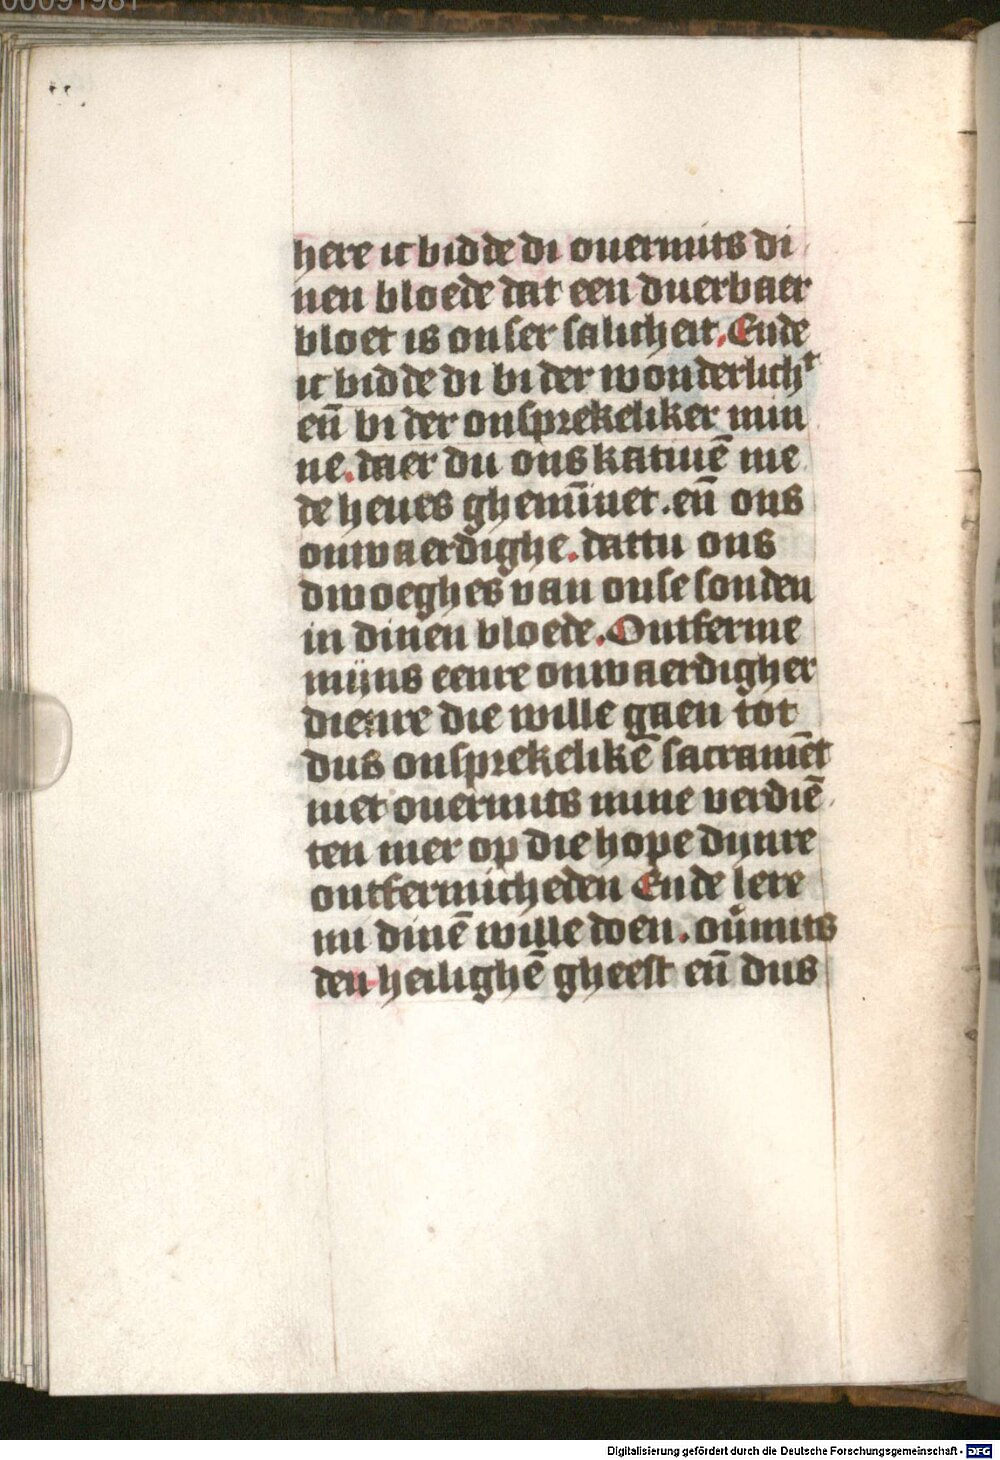 00091981
here ic bidde di ouermits di
nen bloede dat een duerbaer
bloet is onser salicheit. Ende
ic bidde di bi der wonderlichꝭ
en̄ bi der onsprekeliker min
ne. daer du ons katiuē me
de heues ghemīnet. en̄ ons
onwaerdighe. dattu ons
dwoeghes van onse sonden
in dinen bloede. Ontferme
mijns eenre onwaerdigher
dienre die wille gaen tot
dus onsprekelikē sacramēt
niet ouermits mine verdiē
ten mer op die hope dijnre
ontfermicheden Ende lere
mi dinē wille doen. ou̅mits
den heilighē gheest en̄ dus
Digitalisierung gefördert durch die Deutsche Forschungsgemeinschaft - DFG